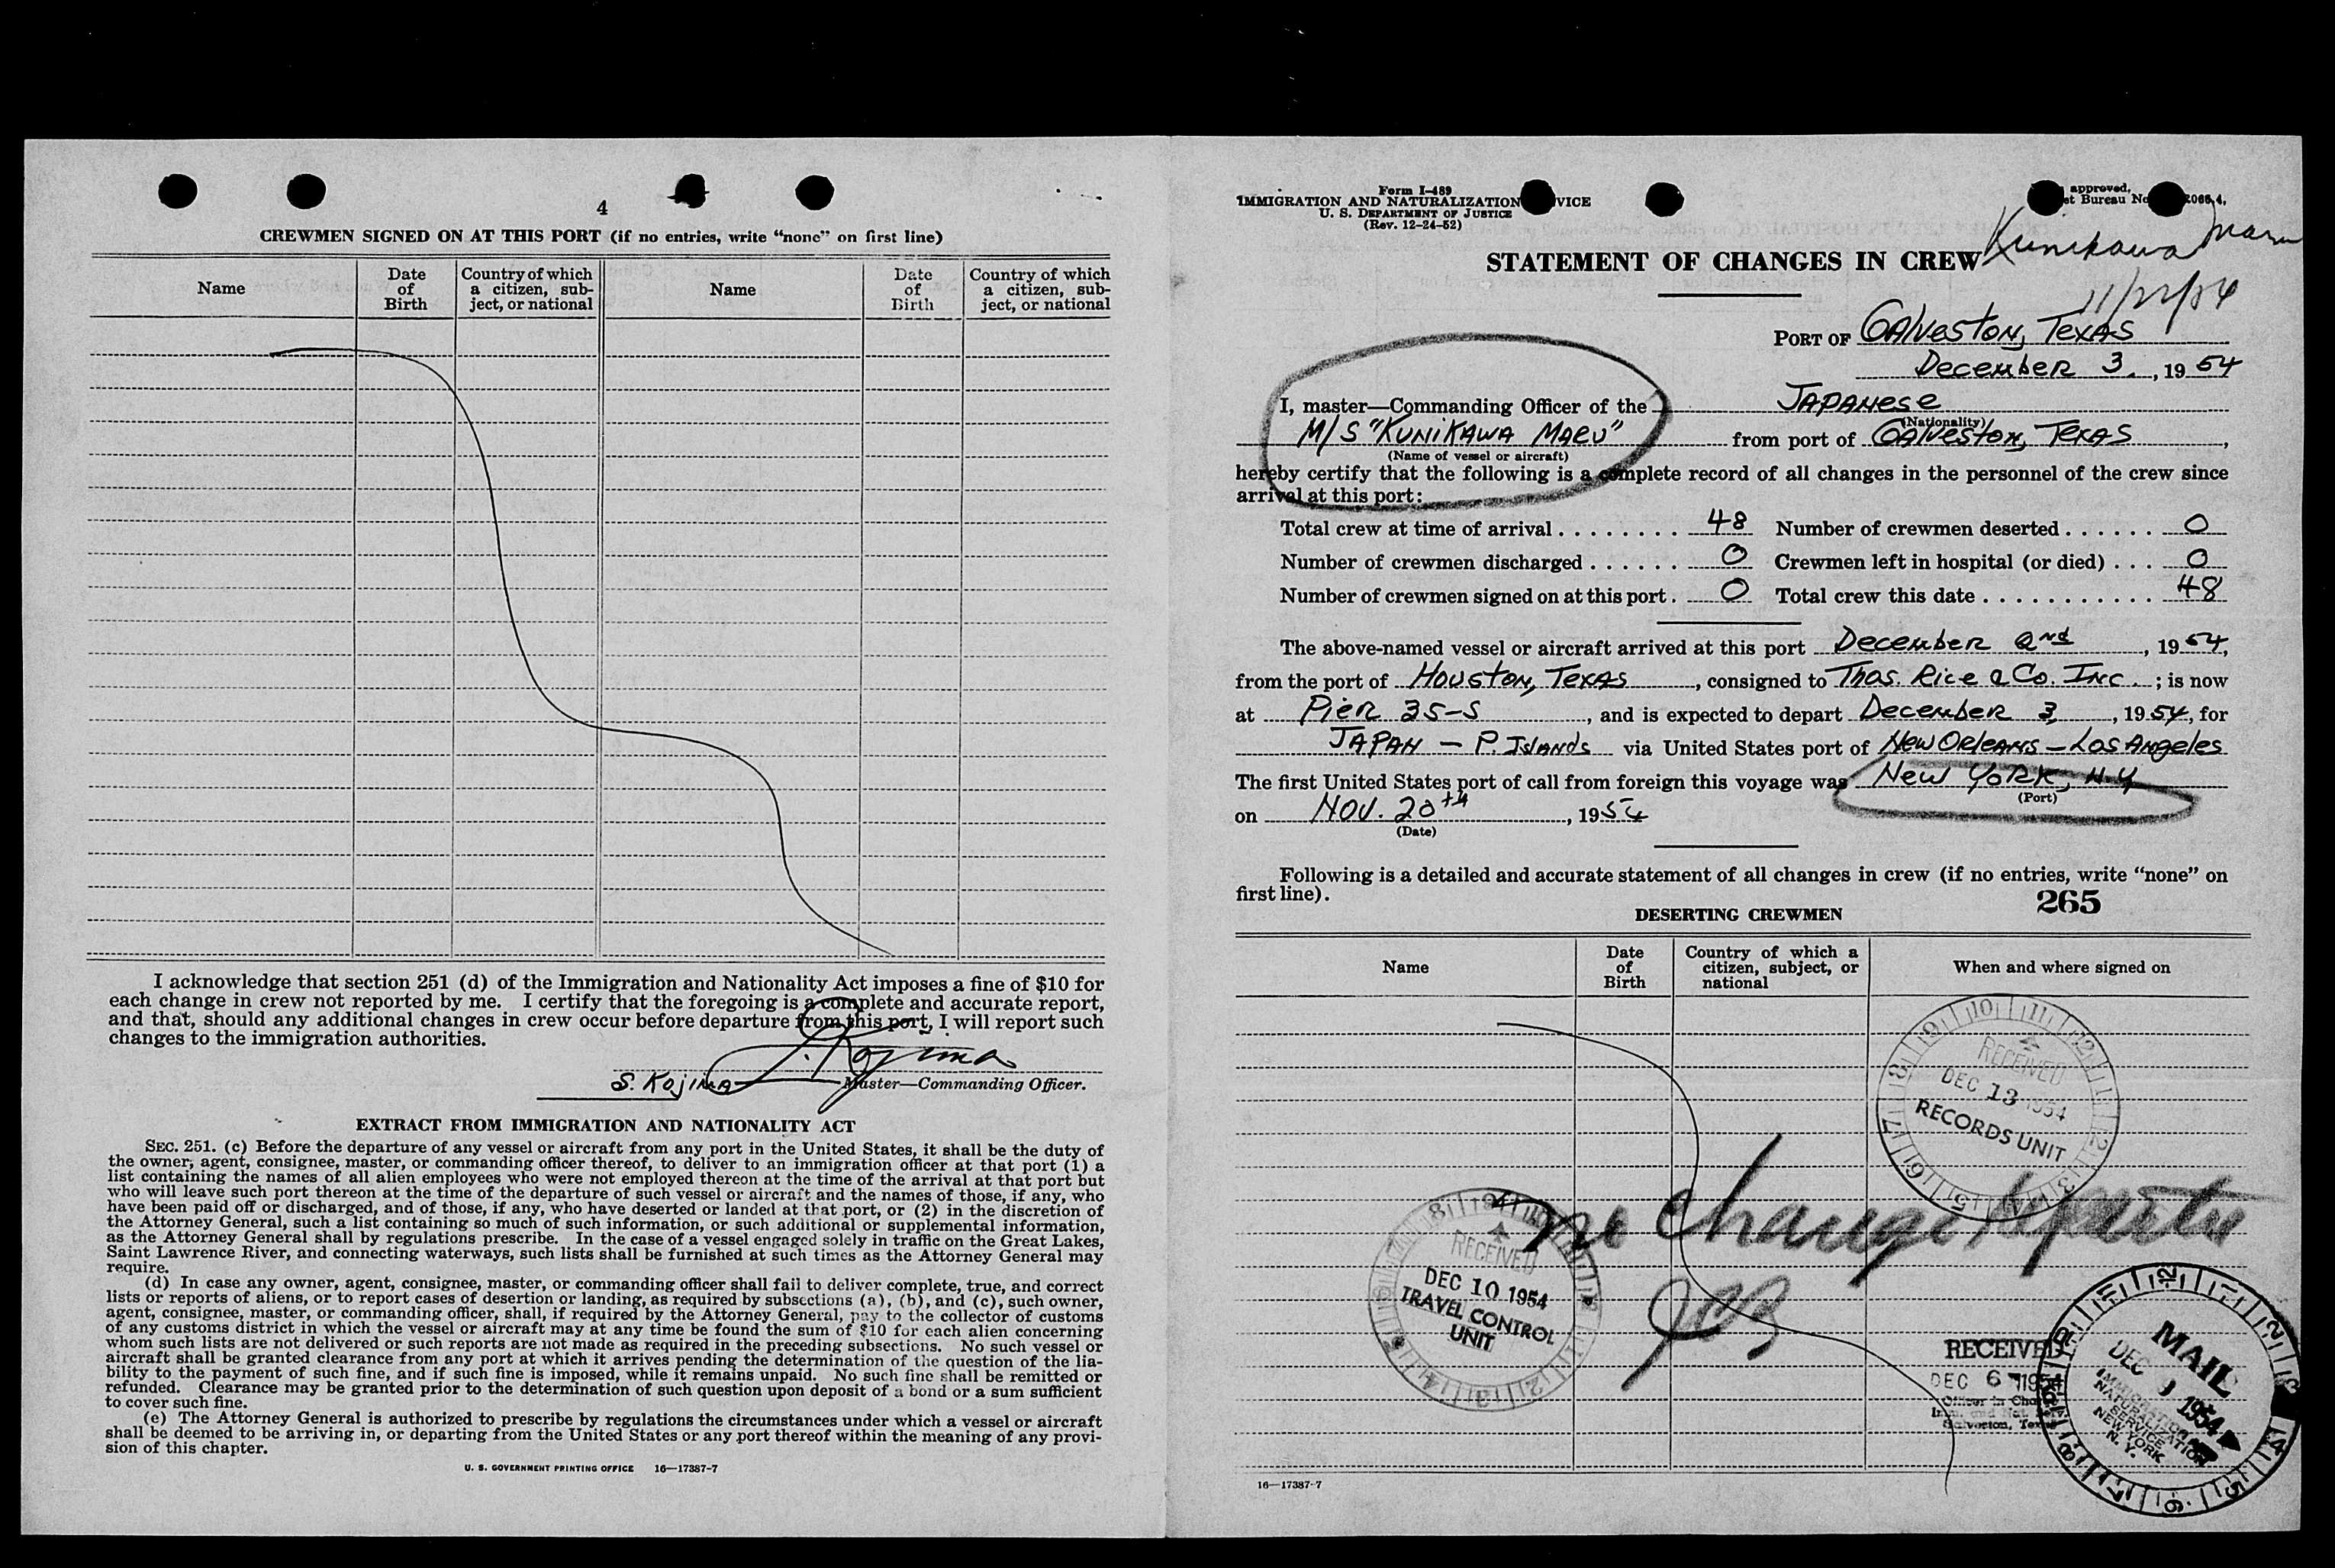 4
CREWMEN SIGNED ON AT THIS PORT (if no entries, write “none” on first line)
Name
Date of Birth
Country of which a citizen, sub-ject, or national
Name
Date of Birth
Country of which a citizen, sub-ject, or national
I acknowledge that section 251 (d) of the Immigration and Nationality Act imposes a fine of $10 for
each change in crew not reported by me. I certify that the foregoing is a complete and accurate report,
and that, should any additional changes in crew occur before departure from this port, I will report such
changes to the immigration authorities.
S. Kojima
S. KOJIMA
Master—Commanding Officer.
EXTRACT FROM IMMIGRATION AND NATIONALITY ACT
SEC. 251. (c) Before the departure of any vessel or aircraft from any port in the United States, it shall be the duty of
the owner, agent, consignee, master, or commanding officer thereof, to deliver to an immigration officer at that port (1) a
list containing the names of all alien employees who were not employed thereon at the time of the arrival at that port but
who will leave such port thereon at the time of the departure of such vessel or aircraft and the names of those, if any, who
have been paid off or discharged, and of those, if any, who have deserted or landed at that port, or (2) in the discretion of
the Attorney General, such a list containing so much of such information, or such additional or supplemental information,
as the Attorney General shall by regulations prescribe. In the case of a vessel engaged solely in traffic on the Great Lakes,
Saint Lawrence River, and connecting waterways, such lists shall be furnished at such times as the Attorney General may
require.
(d) In case any owner, agent, consignee, master, or commanding officer shall fail to deliver complete, true, and correct
lists or reports of aliens, or to report cases of desertion or landing, as required by subsections (a), (b), and (c), such owner,
agent, consignee, master, or commanding officer, shall, if required by the Attorney General, pay to the collector of customs
of any customs district in which the vessel or aircraft may at any time be found the sum of $10 for each alien concerning
whom such lists are not delivered or such reports are not made as required in the preceding subsections. No such vessel or
aircraft shall be granted clearance from any port at which it arrives pending the determination of the question of the lia-
bility to the payment of such fine, and if such fine is imposed, while it remains unpaid. No such fine shall be remitted or
refunded. Clearance may be granted prior to the determination of such question upon deposit of a bond or a sum sufficient
to cover such fine.
(e) The Attorney General is authorized to prescribe by regulations the circumstances under which a vessel or aircraft
shall be deemed to be arriving in, or departing from the United States or any port thereof within the meaning of any provi-
sion of this chapter.
U. S. GOVERNMENT PRINTING OFFICE 16—17387-7
Form I-489
IMMIGRATION AND NATURALIZATION VICE
U. S. DEPARTMENT OF JUSTICE
(Rev. 12-24-52)
approved.
et Bureau No
Kunikawa Maru
11/22/54
STATEMENT OF CHANGES IN CREW
PORT OF Galveston, Texas
December 3, 1954
I, master—Commanding Officer of the JAPANESE
(Nationality)
M/S "KUNIKAWA MARU" from port of Galveston, Texas,
(Name of vessel or aircraft)
hereby certify that the following is a complete record of all changes in the personnel of the crew since
arrival at this port:
Total crew at time of arrival . . . . . . . . 48 Number of crewmen deserted . . . . . . 0
Number of crewmen discharged . . . . . . 0 Crewmen left in hospital (or died) . . . 0
Number of crewmen signed on at this port . 0 Total crew this date . . . . . . . . . . . 48
The above-named vessel or aircraft arrived at this port December 2nd, 1954,
from the port of Houston, Texas, consigned to Thos. Rice & Co. Inc.; is now
at Pier 35-S, and is expected to depart December 3, 1954, for
JAPAN — P. Islands via United States port of New Orleans — Los Angeles
The first United States port of call from foreign this voyage was New York, N.Y
(Port)
on Nov. 20th, 1954
(Date)
Following is a detailed and accurate statement of all changes in crew (if no entries, write “none” on
first line).
265
DESERTING CREWMEN
Name
Date of Birth
Country of which a citizen, subject, or national
When and where signed on
RECEIVED
DEC 13 1954
RECORDS UNIT
no change
RECEIVED
DEC 10 1954
TRAVEL CONTROL
UNIT
RECEIVED
DEC 6 1954
Officer in Cha
MAIL
DEC 1954
IMMIGRATION
NATURALIZATION
SERVICE
NEW YORK
N. Y.
16—17387-7